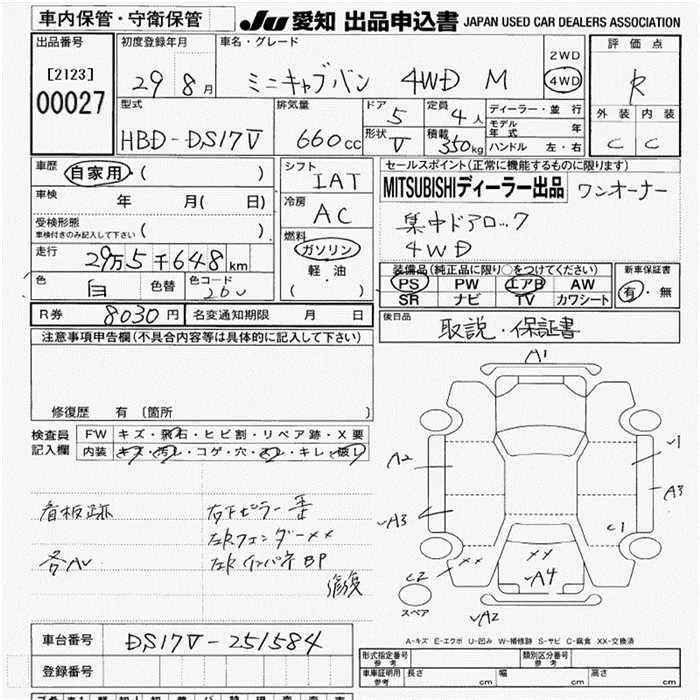 車内保管・守衛保管
JU 愛知 出品申込書 JAPAN USED CAR DEALERS ASSOCIATION
出品番号 初度登録年月 車名・グレード 評価点
[2123] 29 8月 ミニキャブバン 4WD M 2WD 4WD R
00027 型式 排気量 ドア 5 定員 4人 ディーラー・並行 外装 内装
HBD-DS17V 660cc 形状 V 積載 350kg モデル年式 年 C C
ハンドル 左・右
車歴 自家用 ( ) シフト セールスポイント(正常に機能するものに限ります)
IAT MITSUBISHIディーラー出品 ワンオーナー
車検 年 月( 日) 冷房 集中ドアロック
AC 4WD
受検形態 ( )
車検付きのみ記入して下さい 燃料
走行 29万5千648km ガソリン 装備品(純正品に限り○をつけてください) 新車保証書
軽・油 PS PW エアB AW 有・無
色 白 色替 色コード 26U ( ・ ) SR ナビ TV カワシート
R券 8030円 名変通知期限 月 日 後日品 取説・保証書
注意事項申告欄(不具合内容等は具体的に記入して下さい)
A1
修復歴 有 〔箇所 〕
検査員 FW キズ・飛石・ヒビ割・リペア跡・X要
記入欄 内装 キズ・汚レ・コゲ・穴・スレ・キレ・破レ
A2 1
A3 A3
看板跡 右下ピラー歪
左Rフェンダー×× C1
各AU 左Rインパネ BP ××
修復 C2 ×× A4
スペア A2
A-キズ E-エクボ U-凹み W-補修跡 S-サビ C-腐食 XX-交換済
車台番号 DS17V-251584
登録番号
形式指定番号 参考 類別区分番号 参考
車庫証明用 参考 長さ cm 幅 cm 高さ cm